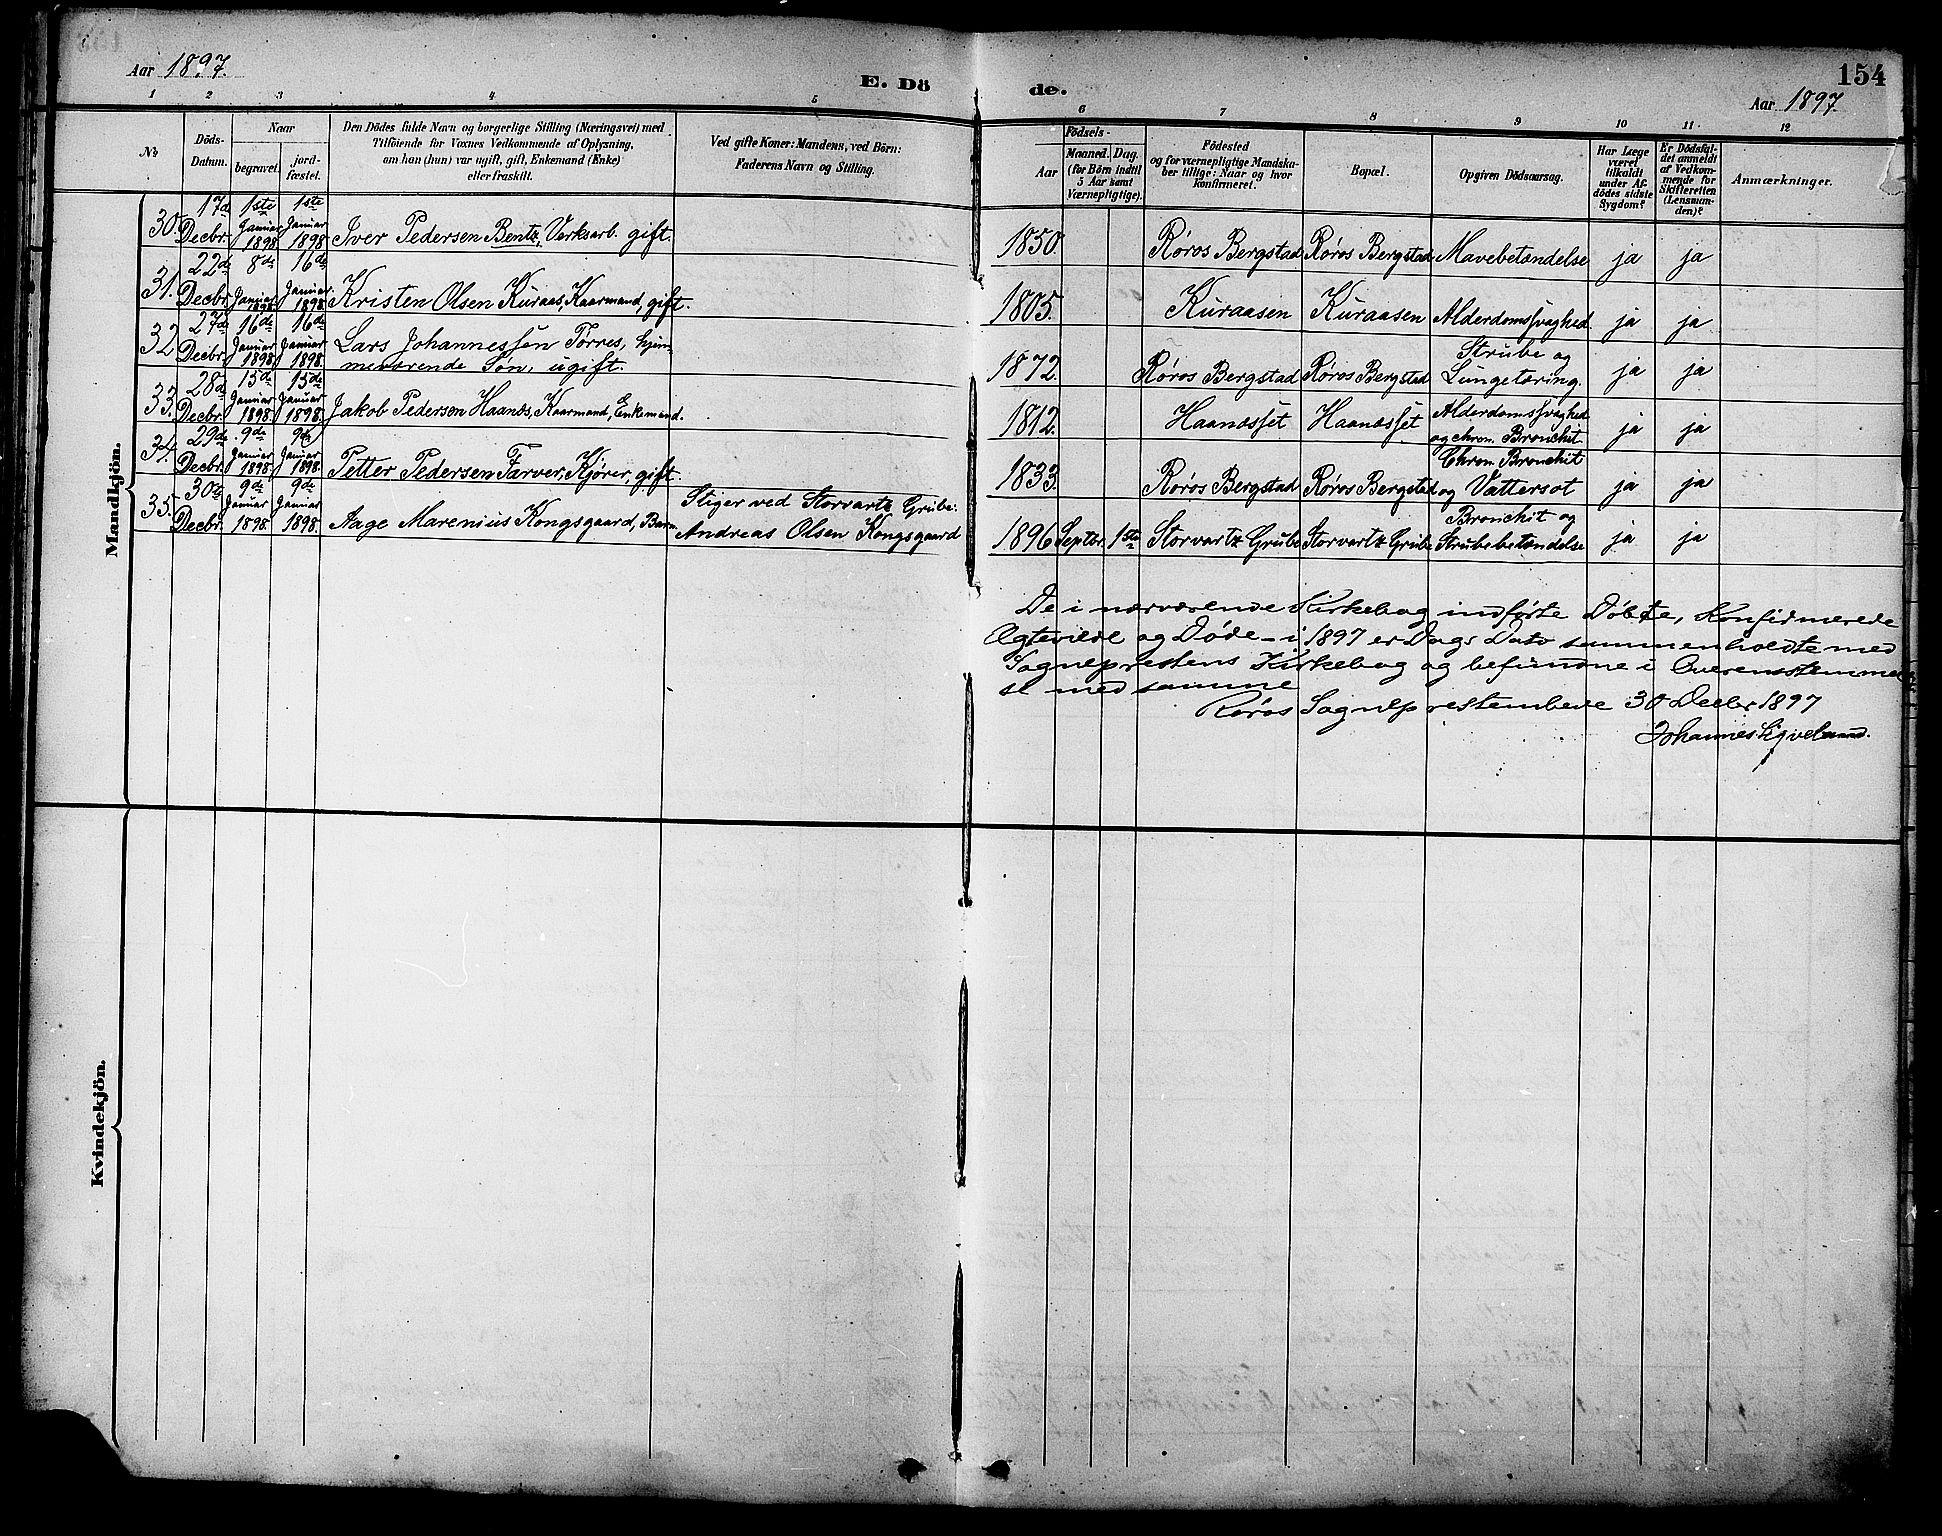 Aar 1897.
E. Dö
de.
154
Aar 1897
1 2 3 4 5 6 7 8 9 10 11 12
No
Döds-
Datum.
Naar
begravet.
jord-
fæstet.
Den Dödes fulde Navn og borgerlige Stilling (Næringsvei) med
Tilföiende for Voxnes Vedkommende af Oplysning,
om han (hun) var ugift, gift, Enkemand (Enke)
eller fraskilt.
Ved gifte Koner: Mandens, ved Börn:
Faderens Navn og Stilling.
Födsels-
Aar
Maaned. Dag.
(for Börn indtil
5 Aar samt
Værnepligtige).
Födested
og for værnepligtige Mandska-
ber tillige: Naar og hvor
konfirmeret.
Bopæl.
Opgiven Dödsaarsag.
Har Læge
været
tilkaldt
under Af-
dödes sidste
Sygdom?
Er Dödsfal-
det anmeldt
af Vedkom-
mende for
Skifteretten
(Lensman-
den)?
Anmærkninger.
Mandkjön.
30. 17de Decbr. 1ste Januar 1898 1ste Januar 1898 Iver Pedersen Bentz, Verksarb. gift. 1850. Røros Bergstad Røros Bergstad Mavebetændelse ja ja
31. 22de Decbr. 8de Januar 1898 16de Januar 1898 Kristen Olsen Kuraas, Kaarmand, gift. 1805. Kuraasen Kuraasen Alderdomssvaghed ja ja
32. 27de Decbr. 16de Januar 1898 16de Januar 1898 Lars Johannessen Tørres, hjem-
meværende Søn, ugift. 1872. Røros Bergstad Røros Bergstad Strube og
Lungetæring. ja ja
33. 28de Decbr. 15de Januar 1898 15de Januar 1898. Jakob Pedersen Haanæs, Kaarmand, Enkemand. 1812. Haanæsset Haanæsset Alderdomssvaghed
og chron. Bronchit. ja ja
34. 29de Decbr. 9de Januar 1898. 9de Januar 1898. Petter Pedersen Farver, Kjører, gift. 1833. Røros Bergstad Røros Bergstad Chron. Bronchit
og Vattersot ja ja
35. 30te Decbr. 9de Januar 1898. 9de Januar 1898. Aage Marenius Kongsgaard, Barn. Stiger ved Storvartz Grube:
Andreas Olsen Kongsgaard 1896 Septbr. 1ste Storvartz Grube Storvartz Grube Bronchit og
Strubebetændelse ja ja
De i nærværende Kirkebog indførte Døbte, Konfirmerede
Ægteviede og Døde i 1897 er Dags Dato sammenholdte med
Sogneprestens Kirkebog og befundne i Overensstemmel
se med samme
Røros Sogneprestembede 30 Decbr 1897
Johannes Sigveland.
Kvindekjön.